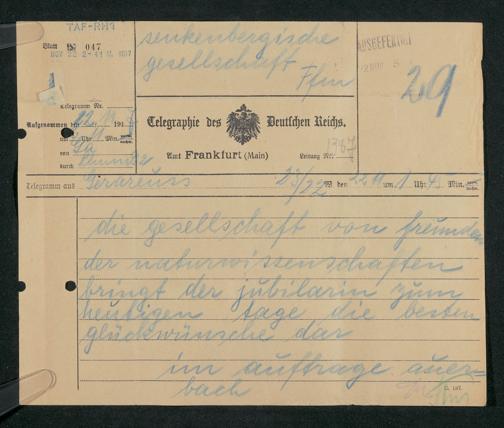 TAF-RH1
Blatt Nr. 047
NOV 22 2-41 N. 1917
senkenbergische
gesellschaft Ffm
AUSGEFERTIGT
29
Telegramm Nr.
Aufgenommen
22/11 191
Uhr Min.
von
durch
Telegraphie des Deutschen Reichs.
Amt Frankfurt (Main)
Leitung Nr.
Telegramm aus gerareuss 23/22 W den 22/11 um 1 Uhr Min.
die gesellschaft von freunden
der naturwissenschaften
bringt der jubilarin zum
heutigen tage die besten
glückwünsche dar
im auftrage auer-
bach
C. 187.